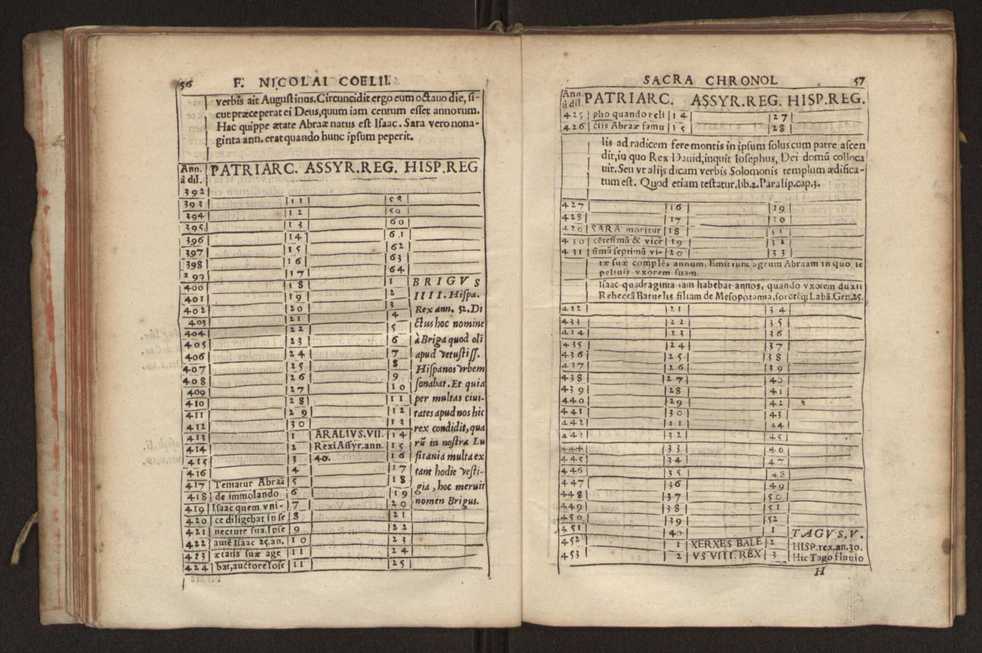 56 F. NICOLAI COELII.
verbis ait Augustinus. Circuncidit ergo eum octauo die, si-
cut præceperat ei Deus, quum iam centum esset annorum.
Hac quippe ætate Abraæ natus est Isaac. Sara vero nona-
ginta ann. erat quando hunc ipsum peperit.
Ann. à dil. PATRIARC. ASSYR.REG. HISP.REG
392
393 11
394 12 59
395 13 60
396 14 61
397 15 62
398 16 63
17 64
400 18 1 BRIGVS
401 19 2 IIII. Hispa.
402 20 3 Rex ann. 52. Di
403 21 4 ctus hoc nomine
404 22 5 à Briga quod oli
405 23 6 apud vetustiss.
406 24 7 Hispanos vrbem
407 25 8 sonabat. Et quia
408 26 9 per multas ciui
409 27 10 tates apud nos hic
410 28 11 rex condidit, qua
411 29 12 rũ in nostra Lu
412 30 13 sitania multa ex
413 1 ARALIVS.VII. 14 tant hodie vesti-
414 2 Rex Assyr. ann. 15 gia, hoc meruit
415 3 40. 16 nomen Brigus.
416 4 17
417 Tentatur Abraã 5 18
418 de immolando 6 19
419 Isaac quem vni- 7 20
420 ce diligebat in se 8 21
421 nectute sua. Ipse 9 22
422 autẽ Isaac 25. an. 10 23
423 ætatis suæ age 11 24
424 bat, auctore Iose 11 25
SACRA CHRONOL 57
Ann. à dil. PATRIARC. ASSYR.REG. HISP.REG.
425 pho quando reli 14 27
426 ctis Abraæ famu 15 28
lis ad radicem fere montis in ipsum solus cum patre ascen
dit, in quo Rex Dauid, inquit Iosephus, Dei domũ colloca
uit. Seu vt alijs dicam verbis Solomonis templum ædifica-
tum est. Quod etiam testatur. lib. 2. Paralip. cap. 3.
427 16 29
428 17 30
429 SARA moritur 18 31
430 cẽtessimũ & vice 19 32
431 simũ septimũ vi- 20 33
tæ suæ complẽs annum. Emit tunc agrum Abraam in quo se
peliuit vxorem suam.
Isaac quadraginta iam habebat annos, quando vxorem duxit
Rebeccã Batuelis filiam de Mesopotamia, sororẽq; Labã. Gen. 25.
432 21 34
433 22 35
434 23 36
435 24 37
436 25 38
437 26 39
438 27 40
439 28 41
440 29 42
441 30 43
442 31 44
443 32 45
444 33 46
445 34 47
446 35 48
447 36 49
448 37 50
449 38 51
450 39 52
451 40 TAGVS. V.
452 1 XERXES BALE 2 HISP. rex. an. 30.
453 2 VS VIII. REX 3 Hic Tago fluuio
H